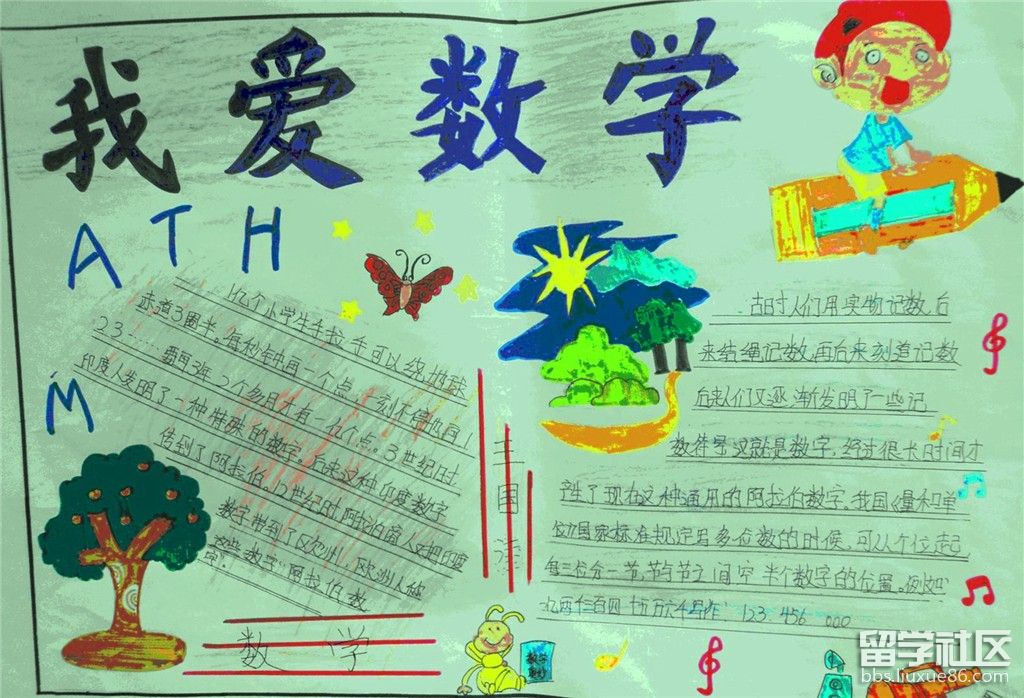 我爱数学
MATH
1亿个小学生手拉手可以绕地球
赤道3圈半。每秒钟画一个点,一刻不停地画1
23……要画3年2个多月才有一亿个点。3世纪时
印度人发明了一种特殊的数字,后来这种印度数字
传到了阿拉伯,12世纪时,阿拉伯商人又把印度
数字带到了欧洲,欧洲人称
这些数字"阿拉伯数
字".
数学
王国
古时人们用实物记数,后
来结绳记数,再后来刻道记数
后来人们又逐渐发明了一些记
数符号这就是数字,经过很长时间才
产生了现在这种通用的阿拉伯数字。我国《量和单
位》国家标准规定写多位数的时候,可从个位起
每三位分一节,节与节之间空半个数字的位置。例如
写作: 123 456 000
数学
留学社区
bbs.liuxue86.com